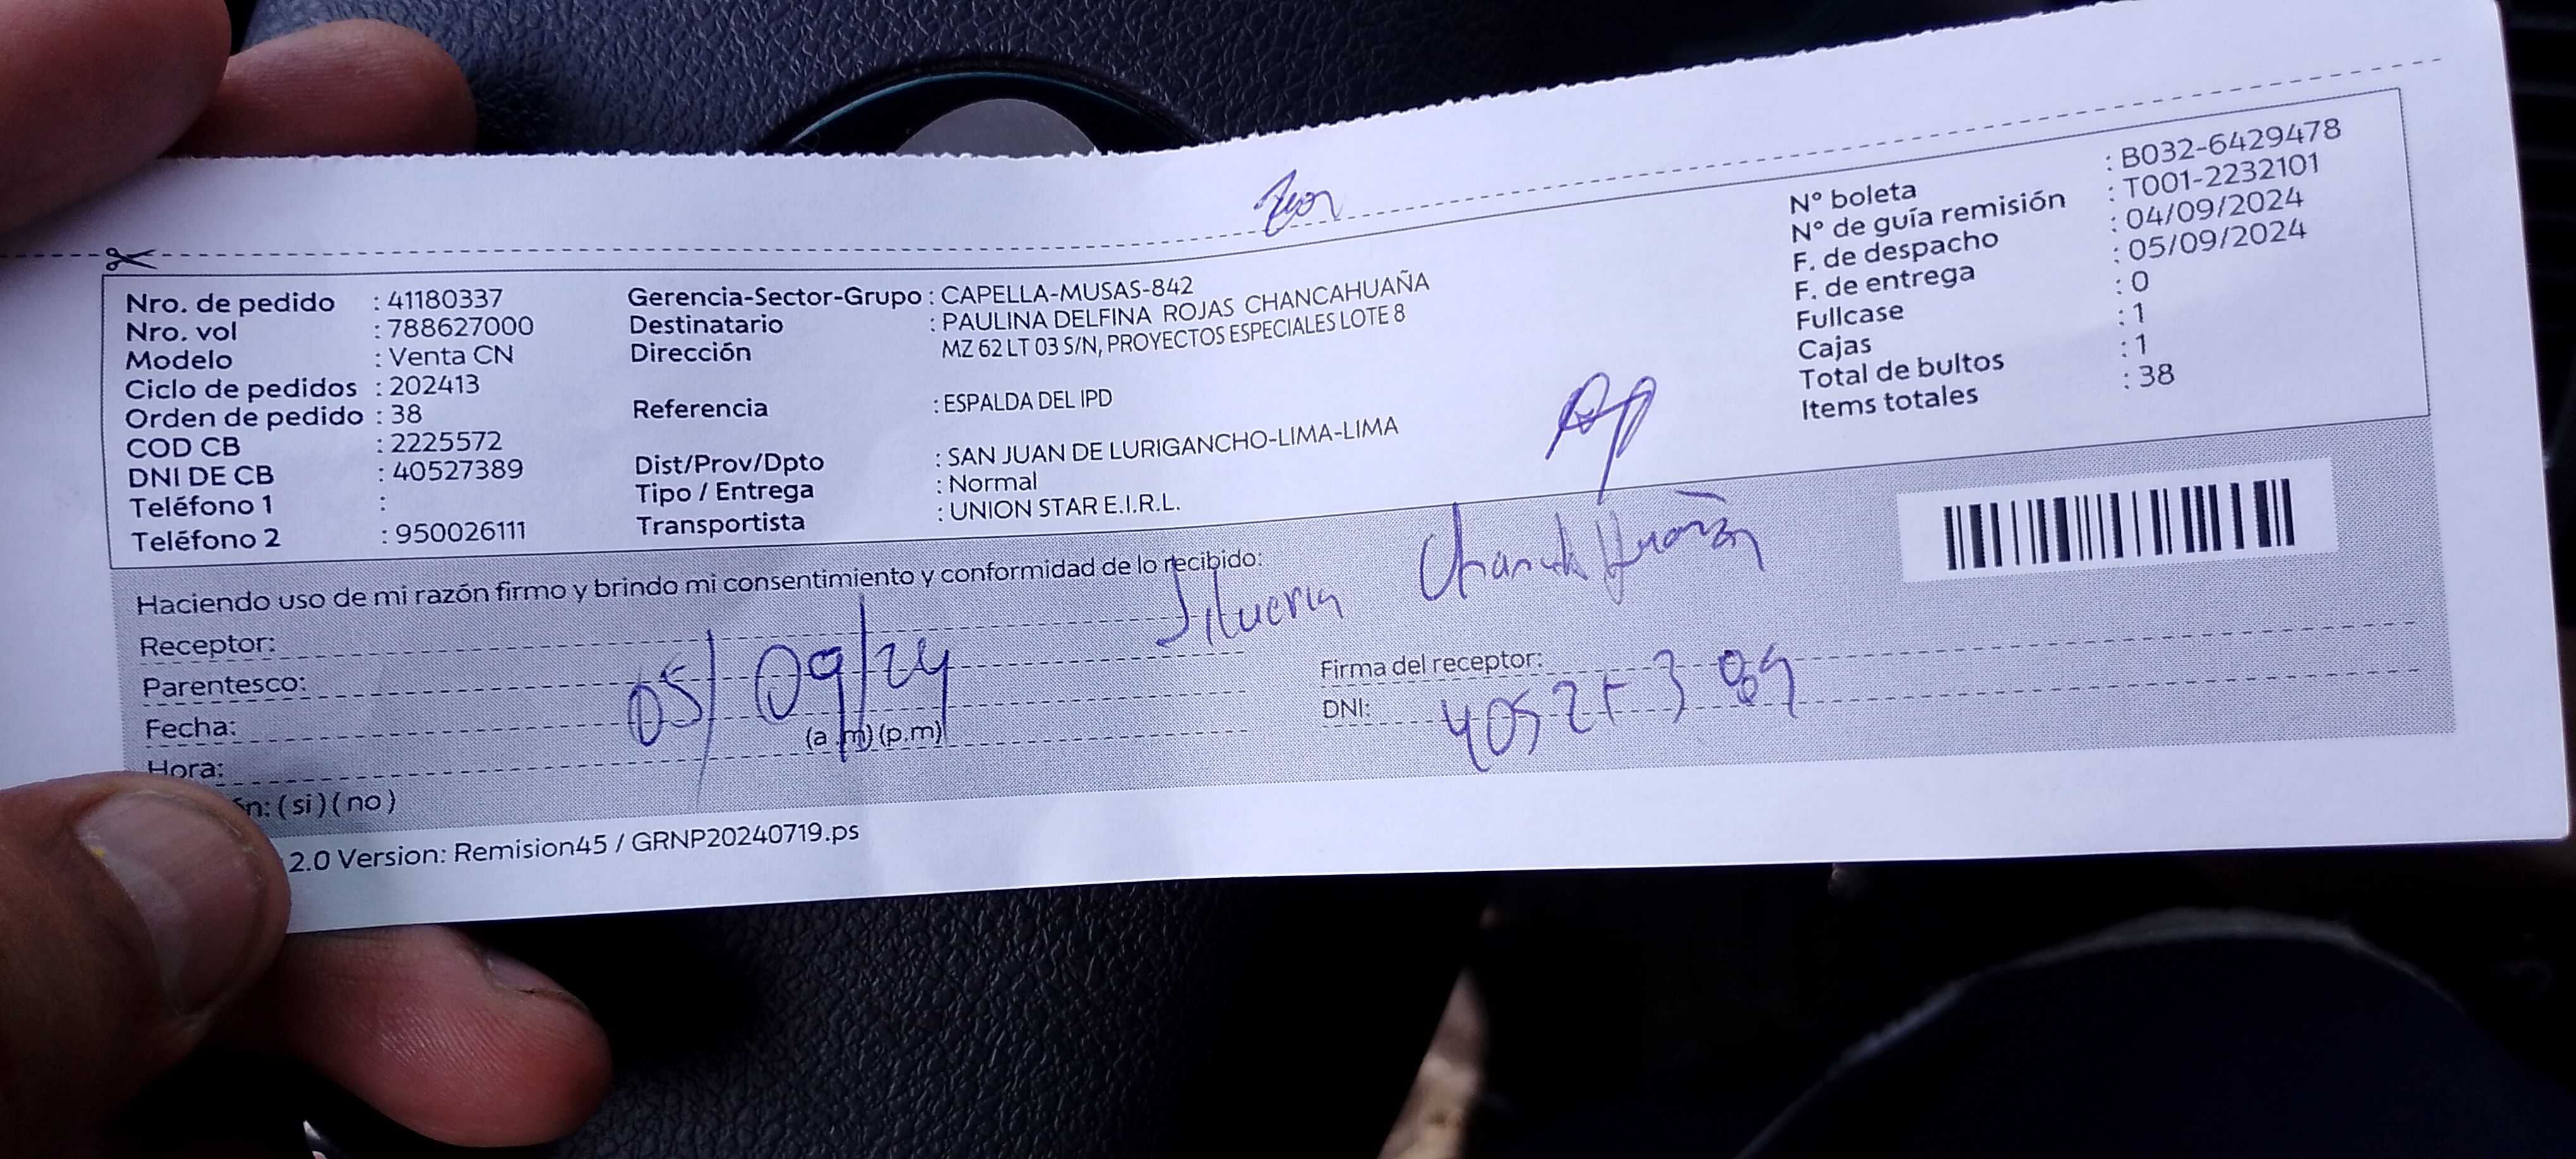 Nro. de pedido : 41180337
Nro. vol : 788627000
Modelo : Venta CN
Ciclo de pedidos : 202413
Orden de pedido : 38
COD CB : 2225572
DNI DE CB : 40527389
Teléfono 1 :
Teléfono 2 : 950026111
Gerencia-Sector-Grupo : CAPELLA-MUSAS-842
Destinatario : PAULINA DELFINA ROJAS CHANCAHUAÑA
Dirección MZ 62 LT 03 S/N, PROYECTOS ESPECIALES LOTE 8
Referencia : ESPALDA DEL IPD
Dist/Prov/Dpto : SAN JUAN DE LURIGANCHO-LIMA-LIMA
Tipo / Entrega : Normal
Transportista : UNION STAR E.I.R.L.
N° boleta : B032-6429478
N° de guía remisión : T001-2232101
F. de despacho : 04/09/2024
F. de entrega : 05/09/2024
Fullcase : 0
Cajas : 1
Total de bultos : 1
Items totales : 38
Haciendo uso de mi razón firmo y brindo mi consentimiento y conformidad de lo recibido:
Receptor:
Parentesco:
Fecha: 05/09/24
Hora: (a.m) (p.m)
n: (si) (no)
Firma del receptor:
DNI: 40527389
2.0 Version: Remision45 / GRNP20240719.ps